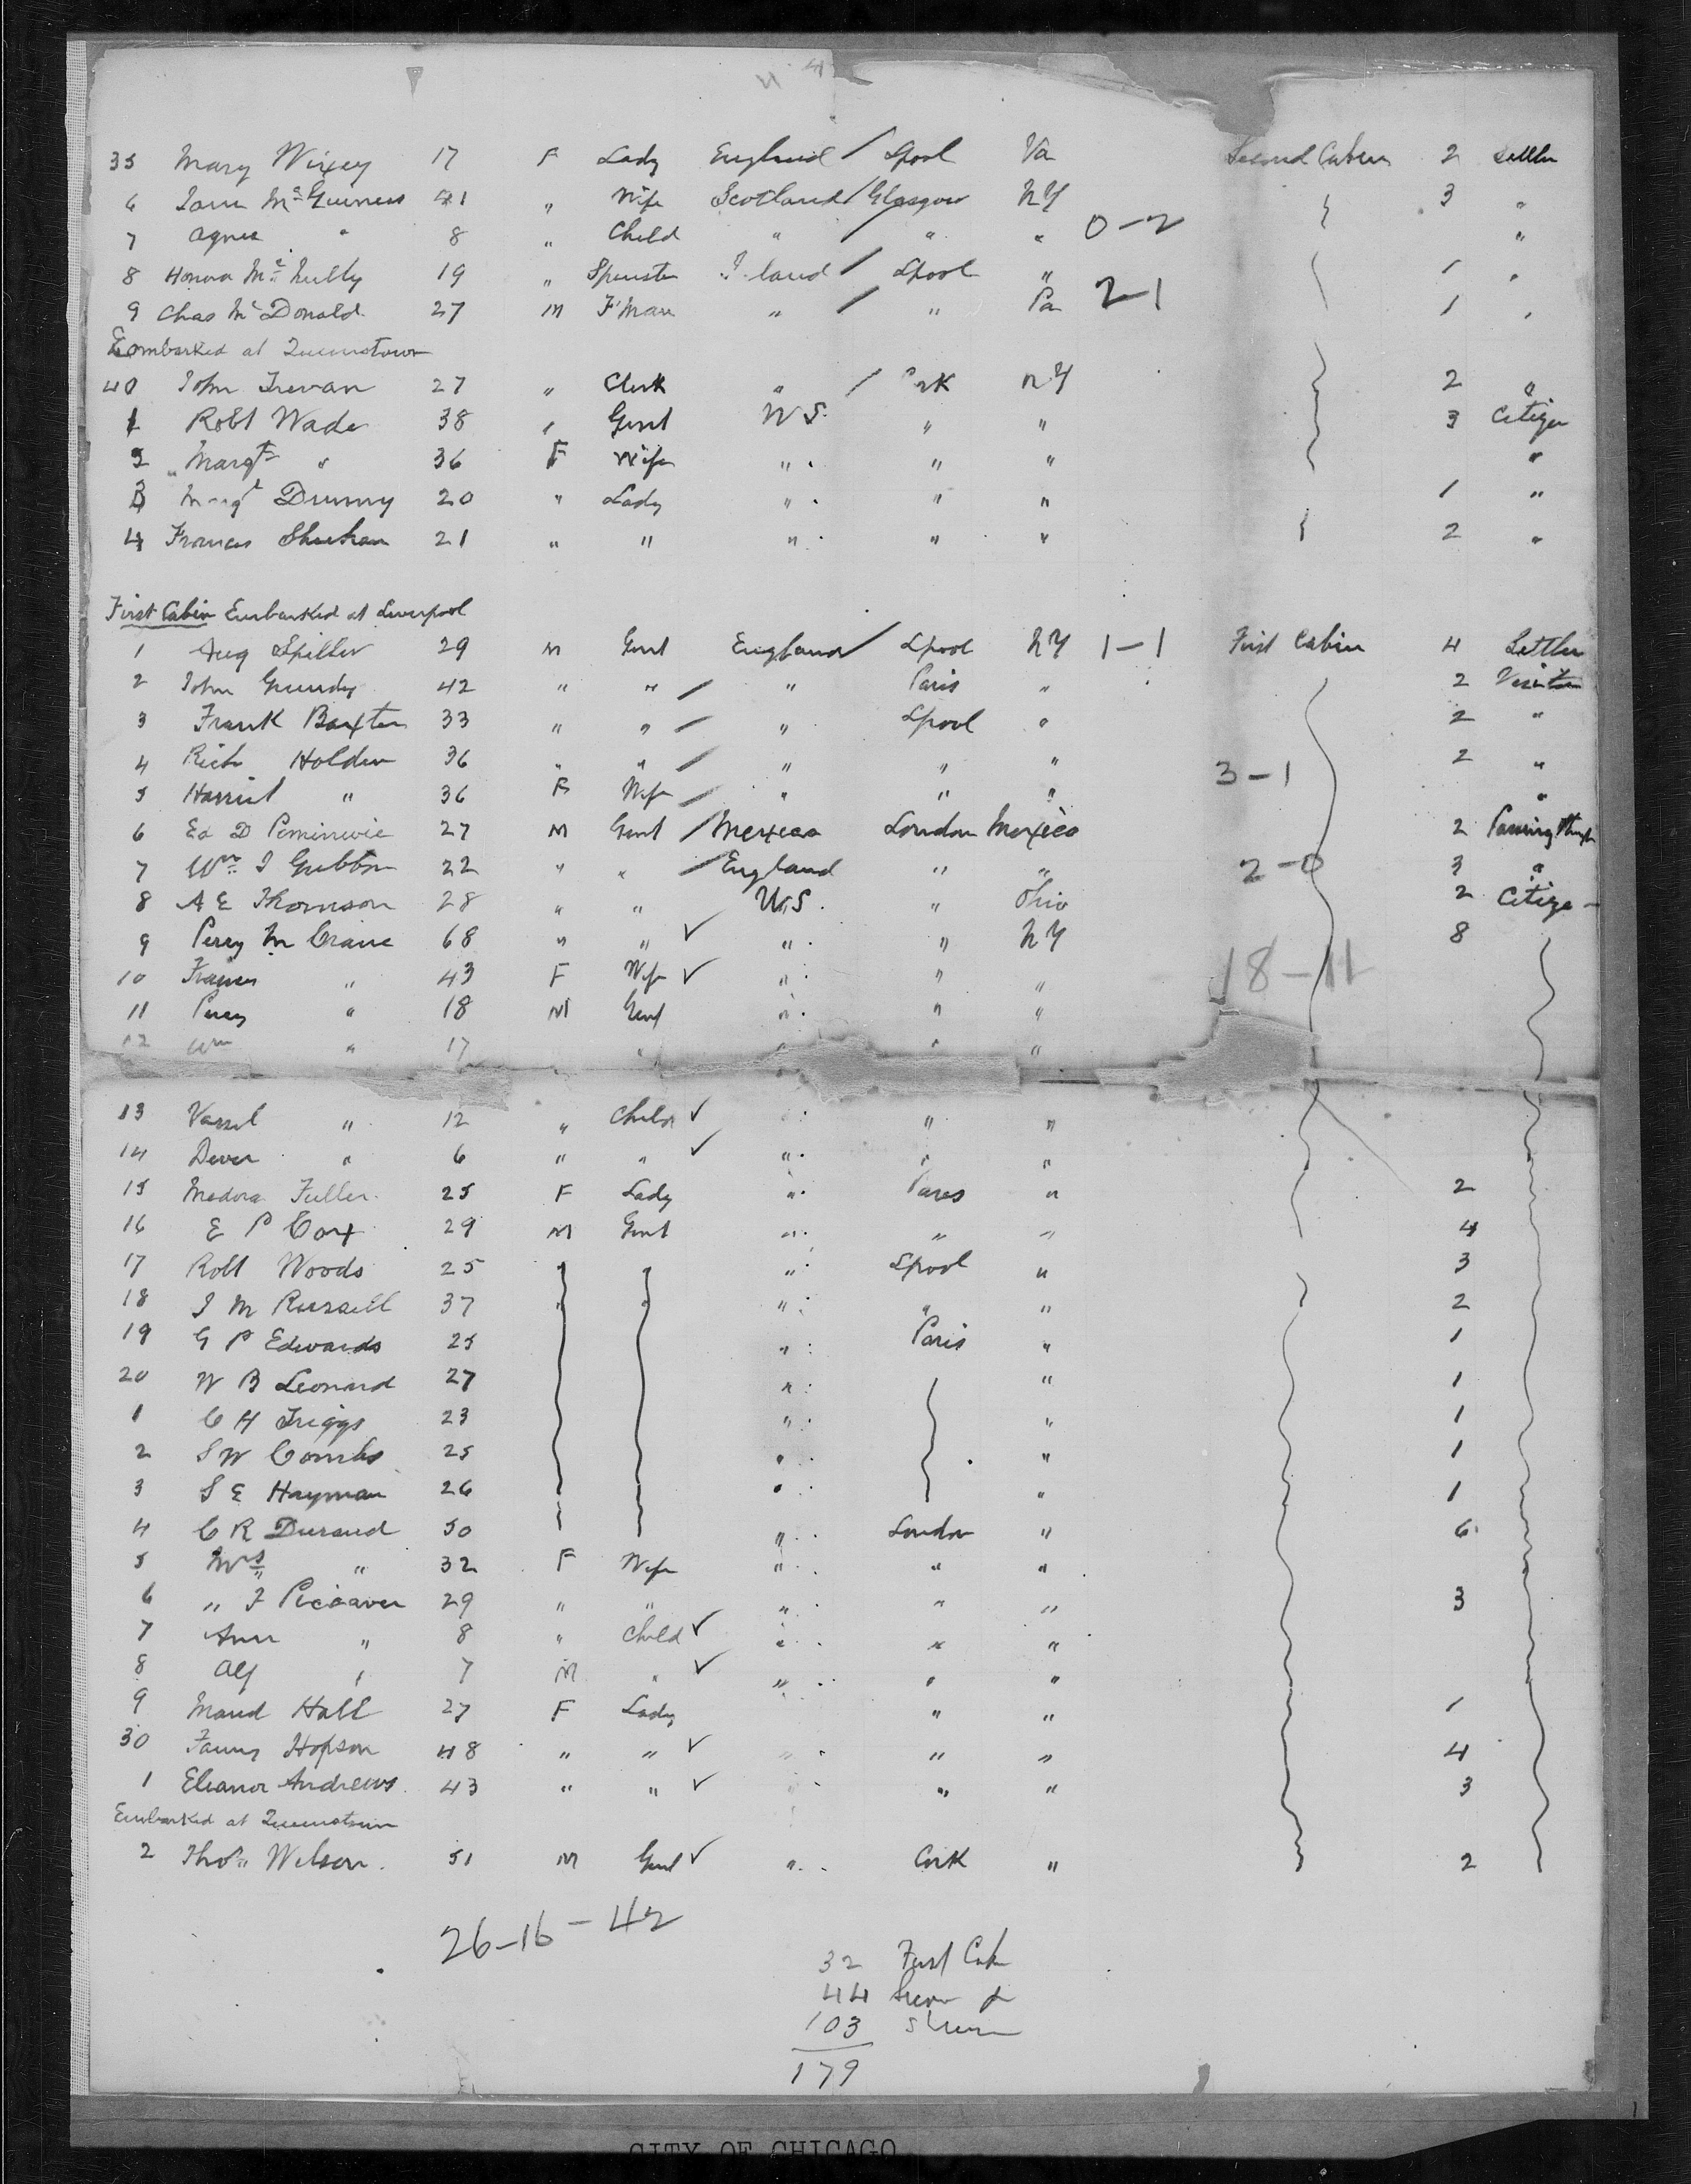 35 Mary Wixey 17 F Lady England / Lpool Va Second Cabin 2 Settler
6 Jane McGuiness 41 " Wife Scotland / Glasgow NY 3 "
7 Agnes " 8 " Child " / " " 0-2 "
8 Honora McNully 19 " Spinster I land / Lpool " 1 "
9 Chas McDonald 27 M F'Man " / " Pa 2-1 1 "
Embarked at Queenstown
40 John Trevan 27 " Clerk " / Cork NY 2 "
1 Robt Wade 38 " Gent U S. " " 3 Citizen
2 " Margt " 36 F Wife " " " "
3 Margt Dunny 20 " Lady " " " 1 "
4 Frances Sheehan 21 " " " " " 2 "
First Cabin Embarked at Liverpool
1 Aug Spiller 29 M Gent England / Lpool NY 1-1 First Cabin 4 Settler
2 John Grundy 42 " " / " Paris " 2 Visitor
3 Frank Baxter 33 " " / " Lpool " 2 "
4 Rich Holden 36 " " / " " " 2 "
5 Harriet " 36 F Wife / " " " 3-1 "
6 Ed D 27 M Gent / Mexico London Mexico 2 Passing through
7 Wm J Gubbon 22 " " / England " " 2-0 3 "
8 A E Thomson 28 " " U.S. " Ohio 2 Citizen
9 Percy M Crane 68 " " ✓ " " NY 8
10 Frances " 43 F Wife ✓ " " " 18-11
11 Percy " 18 M Gent " " "
12 Wm " 17 " " " "
13 " 12 " Child ✓ " " "
14 " 6 " " ✓ " " "
15 Medora Fuller 25 F Lady " Paris " 2
16 E P Cox 29 M Gent " " " 4
17 Robt Woods 25 " Lpool " 3
18 J M Russell 37 " " " " " 2
19 G P Edwards 25 " Paris " 1
20 W B Leonard 27 " " 1
1 C H Triggs 23 " " 1
2 S W Combs 25 " " 1
3 S E Hayman 26 " " 1
4 C R Durand 50 " London " 6
5 Mrs " 32 F Wife " " "
6 " F 29 " " " " " 3
7 Ann " 8 " Child ✓ " " "
8 Alf " 7 M " ✓ " " "
9 Maud Hall 27 F Lady " " 1
30 Fanny Hopson 48 " " ✓ " " " 4
1 Eleanor Andrews 43 " " ✓ " " " 3
Embarked at Queenstown
2 Thos Wilson. 51 M Gent ✓ " Cork " 2
26-16-42
32 First Cab
44 Secon
103
179
CITY OF CHICAGO